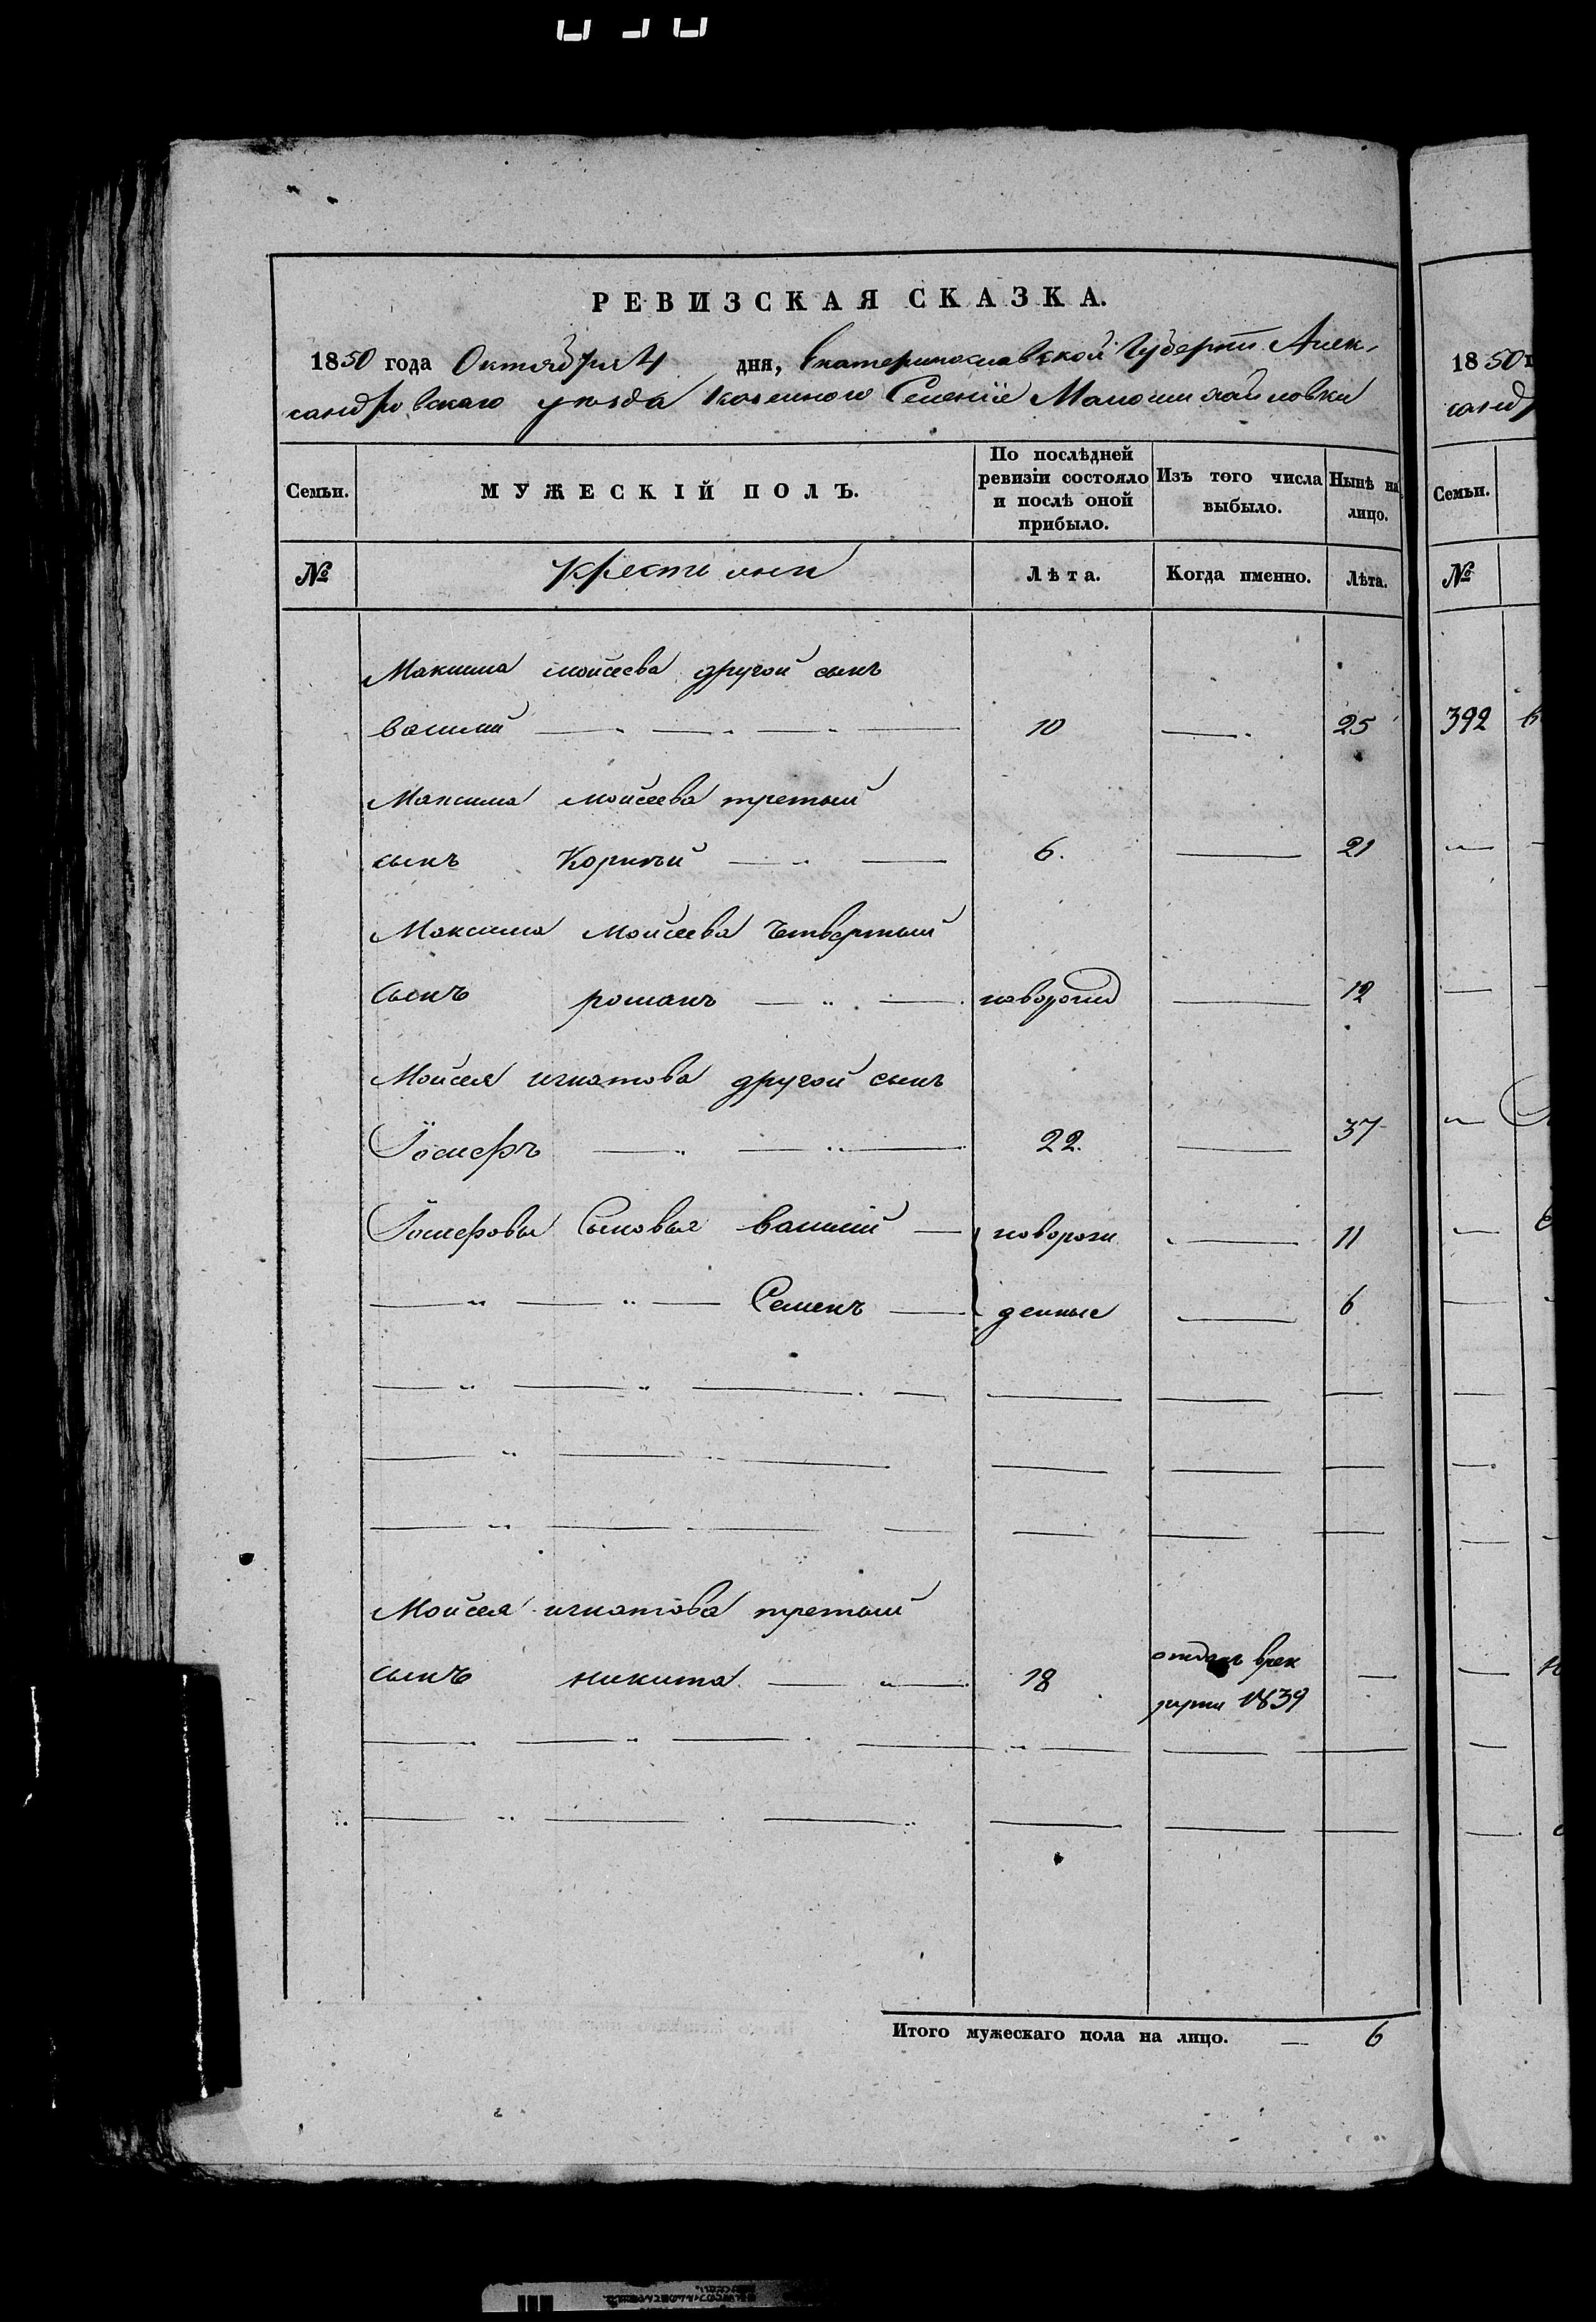 РЕВИЗСКАЯ СКАЗКА.
1850 года Октября 4 дня, Екатеринославской Губерніи Алек-
сандровскаго уѣзда Казенного Селенія Маломихайловки
Семьи.
МУЖЕСКІЙ ПОЛЪ.
По послѣдней ревизіи состояло и послѣ оной прибыло.
Изъ того числа выбыло.
Нынѣ на лицо.
№
крестьяни
Лѣта.
Когда именно.
Лѣта.
Максима моисеева другой сынъ
василий 10 25
Максима моисеева третьий
сынъ Корнѣй 6. 21
Максима Моисеева Четвертый
сынъ романъ новорожд 12
Моисея игнатова другой сынъ
Іосифъ 22. 37
Іосифовы Сыновья василий новорож 11
Семенъ денные 6
Моисея игнатова третьий
сынъ никита 18 отданъ врек
руты 1839
Итого мужескаго пола на лицо. 6
1850
санд
Семьи.
№
392